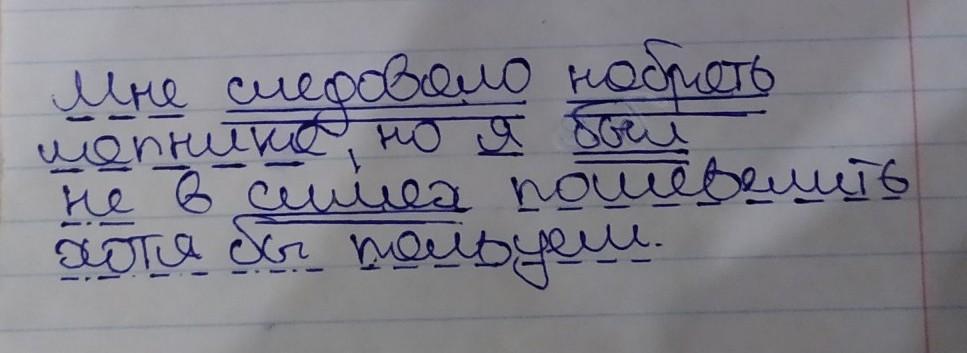 Мне следовало набрать
лапника, но я был
не в силах пошевелить
хотя бы пальцем.